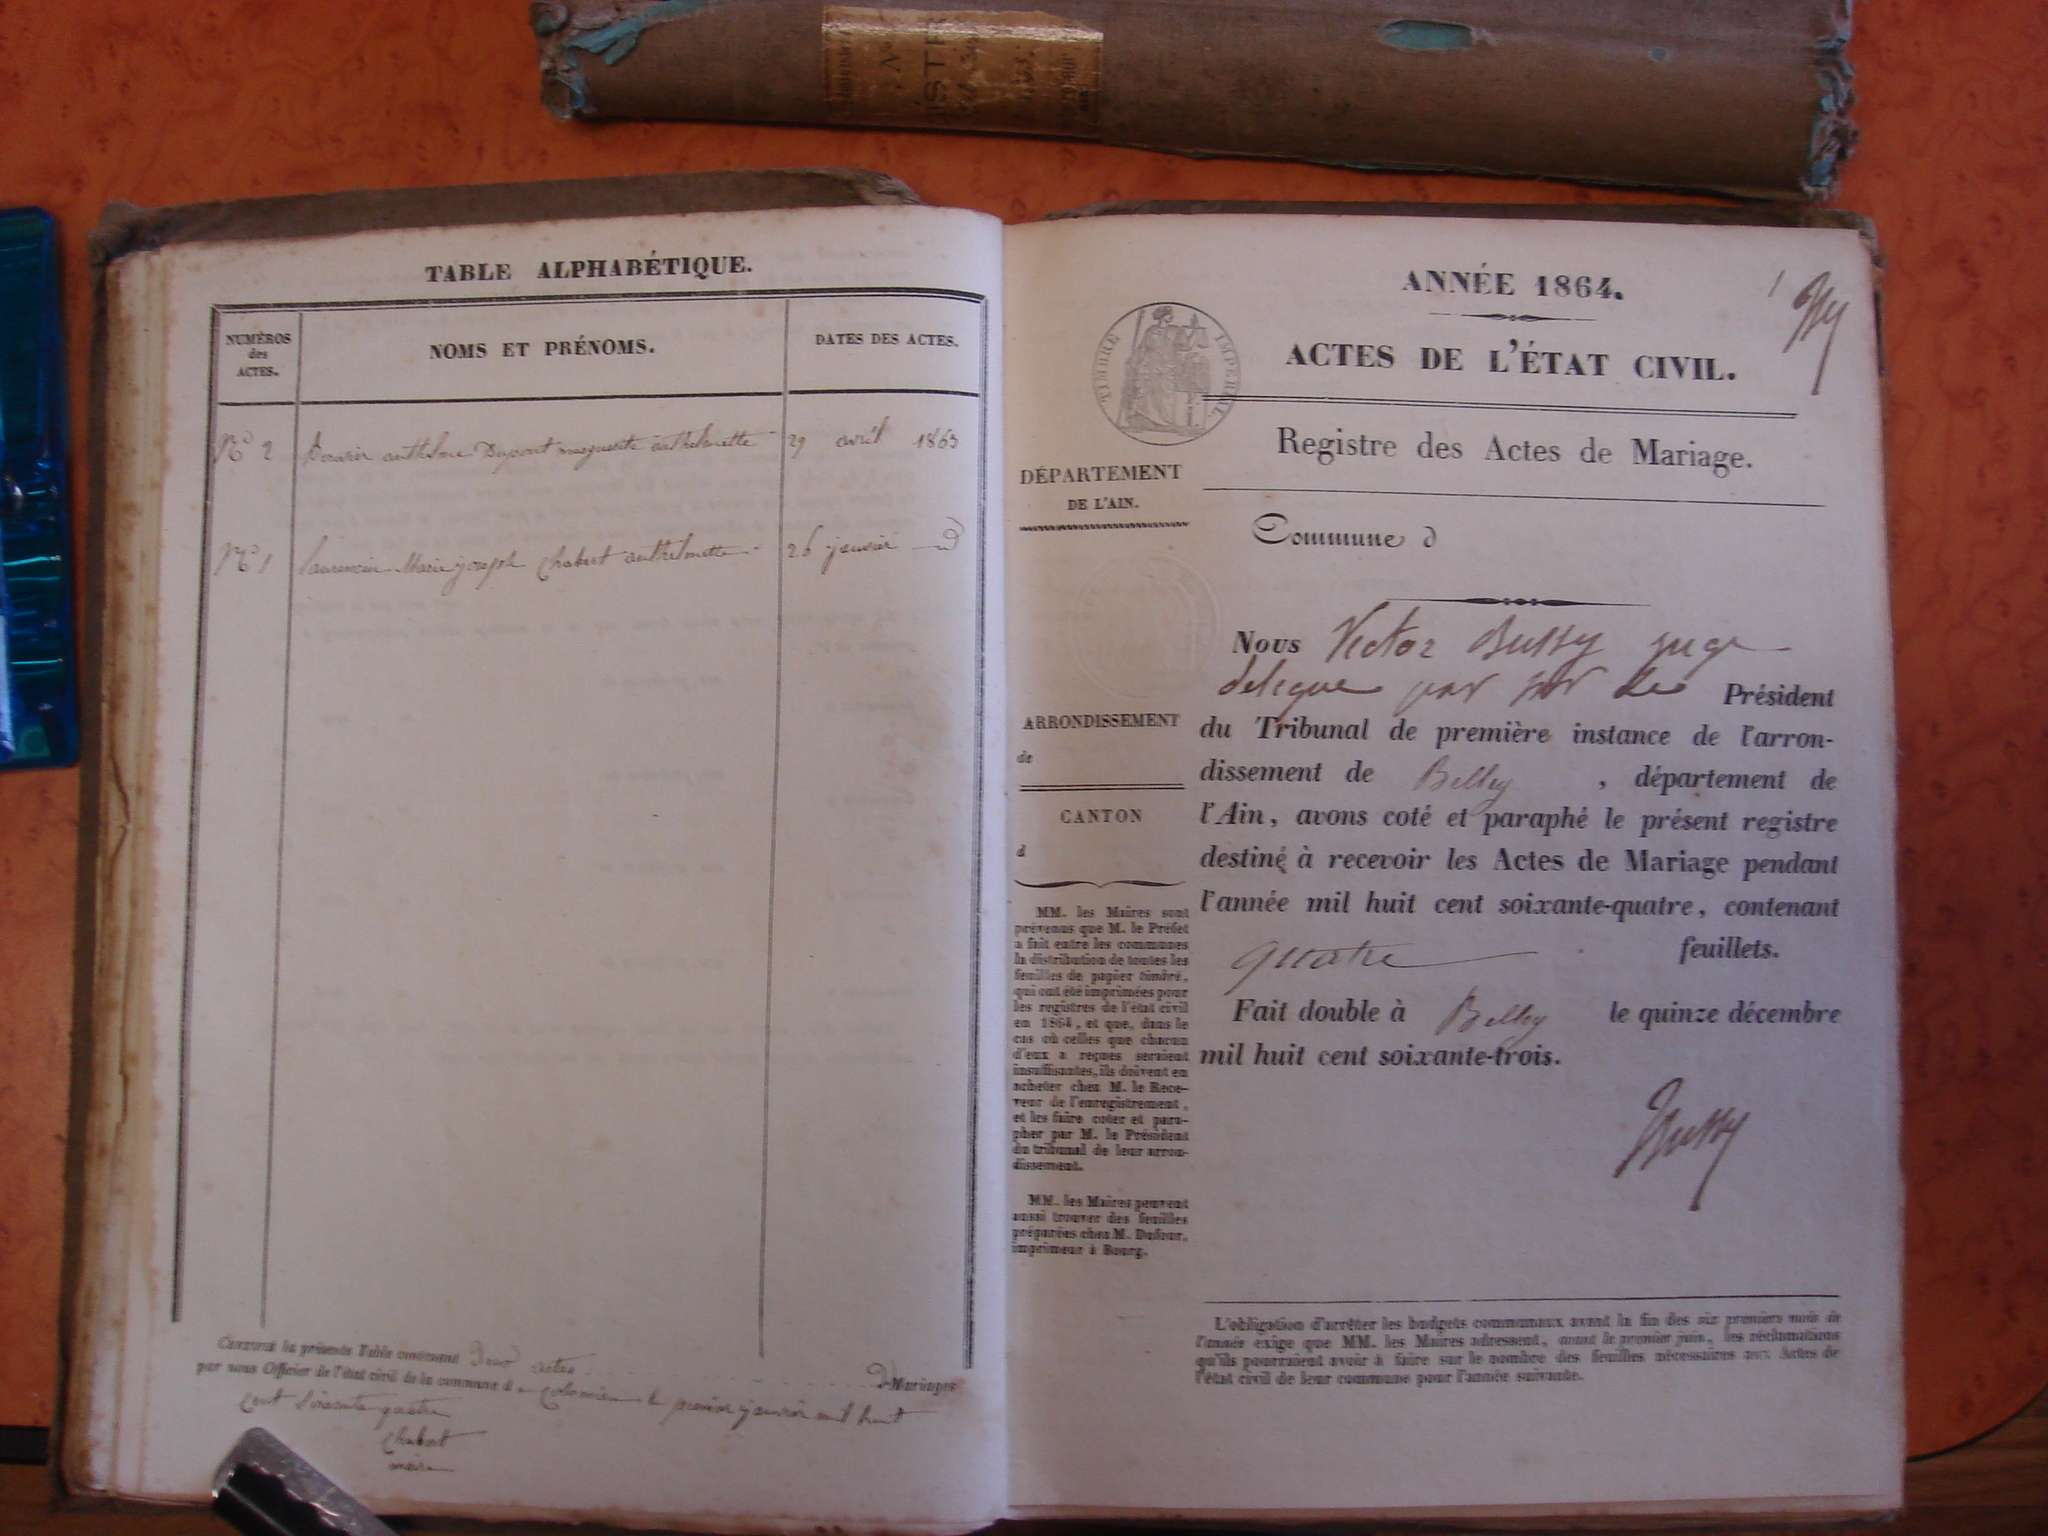 TABLE ALPHABÉTIQUE.
NUMÉROS
des
ACTES.
NOMS ET PRÉNOMS.
DATES DES ACTES.
N° 2 anthelme Dupont marguerite anthelmette 29 avril 1863
N° 1 Marie joseph Chabert anthelmette 26 janvier d
CERTIFIÉ la présente Table contenant Deux actes de Mariages
par nous Officier de l'état civil de la commune d le premier janvier mil huit
cent soixante quatre
Chabert
maire
ISTR
ANNÉE 1864.
1
TIMBRE IMPÉRIAL
ACTES DE L'ÉTAT CIVIL.
Registre des Actes de Mariage.
DÉPARTEMENT
DE L'AIN.
Commune d
ARRONDISSEMENT
de
CANTON
d
MM. les Maires sont
prévenus que M. le Préfet
a fait entre les communes
la distribution de toutes les
feuilles de papier timbré,
qui ont été imprimées pour
les registres de l'état civil
en 1864, et que, dans le
cas où celles que chacun
d'eux a reçues seraient
insuffisantes, ils doivent en
acheter chez M. le Rece-
veur de l'enregistrement,
et les faire coter et para-
pher par M. le Président
du tribunal de leur arron-
dissement.
MM. les Maires peuvent
aussi trouver des feuilles
préparées chez M. Dufour,
imprimeur à Bourg.
Nous Victor Bussy juge
delegue par Président
du Tribunal de première instance de l'arron-
dissement de Belley , département de
l'Ain, avons coté et paraphé le présent registre
destiné à recevoir les Actes de Mariage pendant
l'année mil huit cent soixante-quatre, contenant
quatre feuillets.
Fait double à Belley le quinze décembre
mil huit cent soixante-trois.
Bussy
L'obligation d'arrêter les budgets communaux avant la fin des six premiers mois de
l'année exige que MM. les Maires adressent, avant le premier juin, les réclamations
qu'ils pourraient avoir à faire sur le nombre des feuilles nécessaires aux Actes de
l'état civil de leur commune pour l'année suivante.